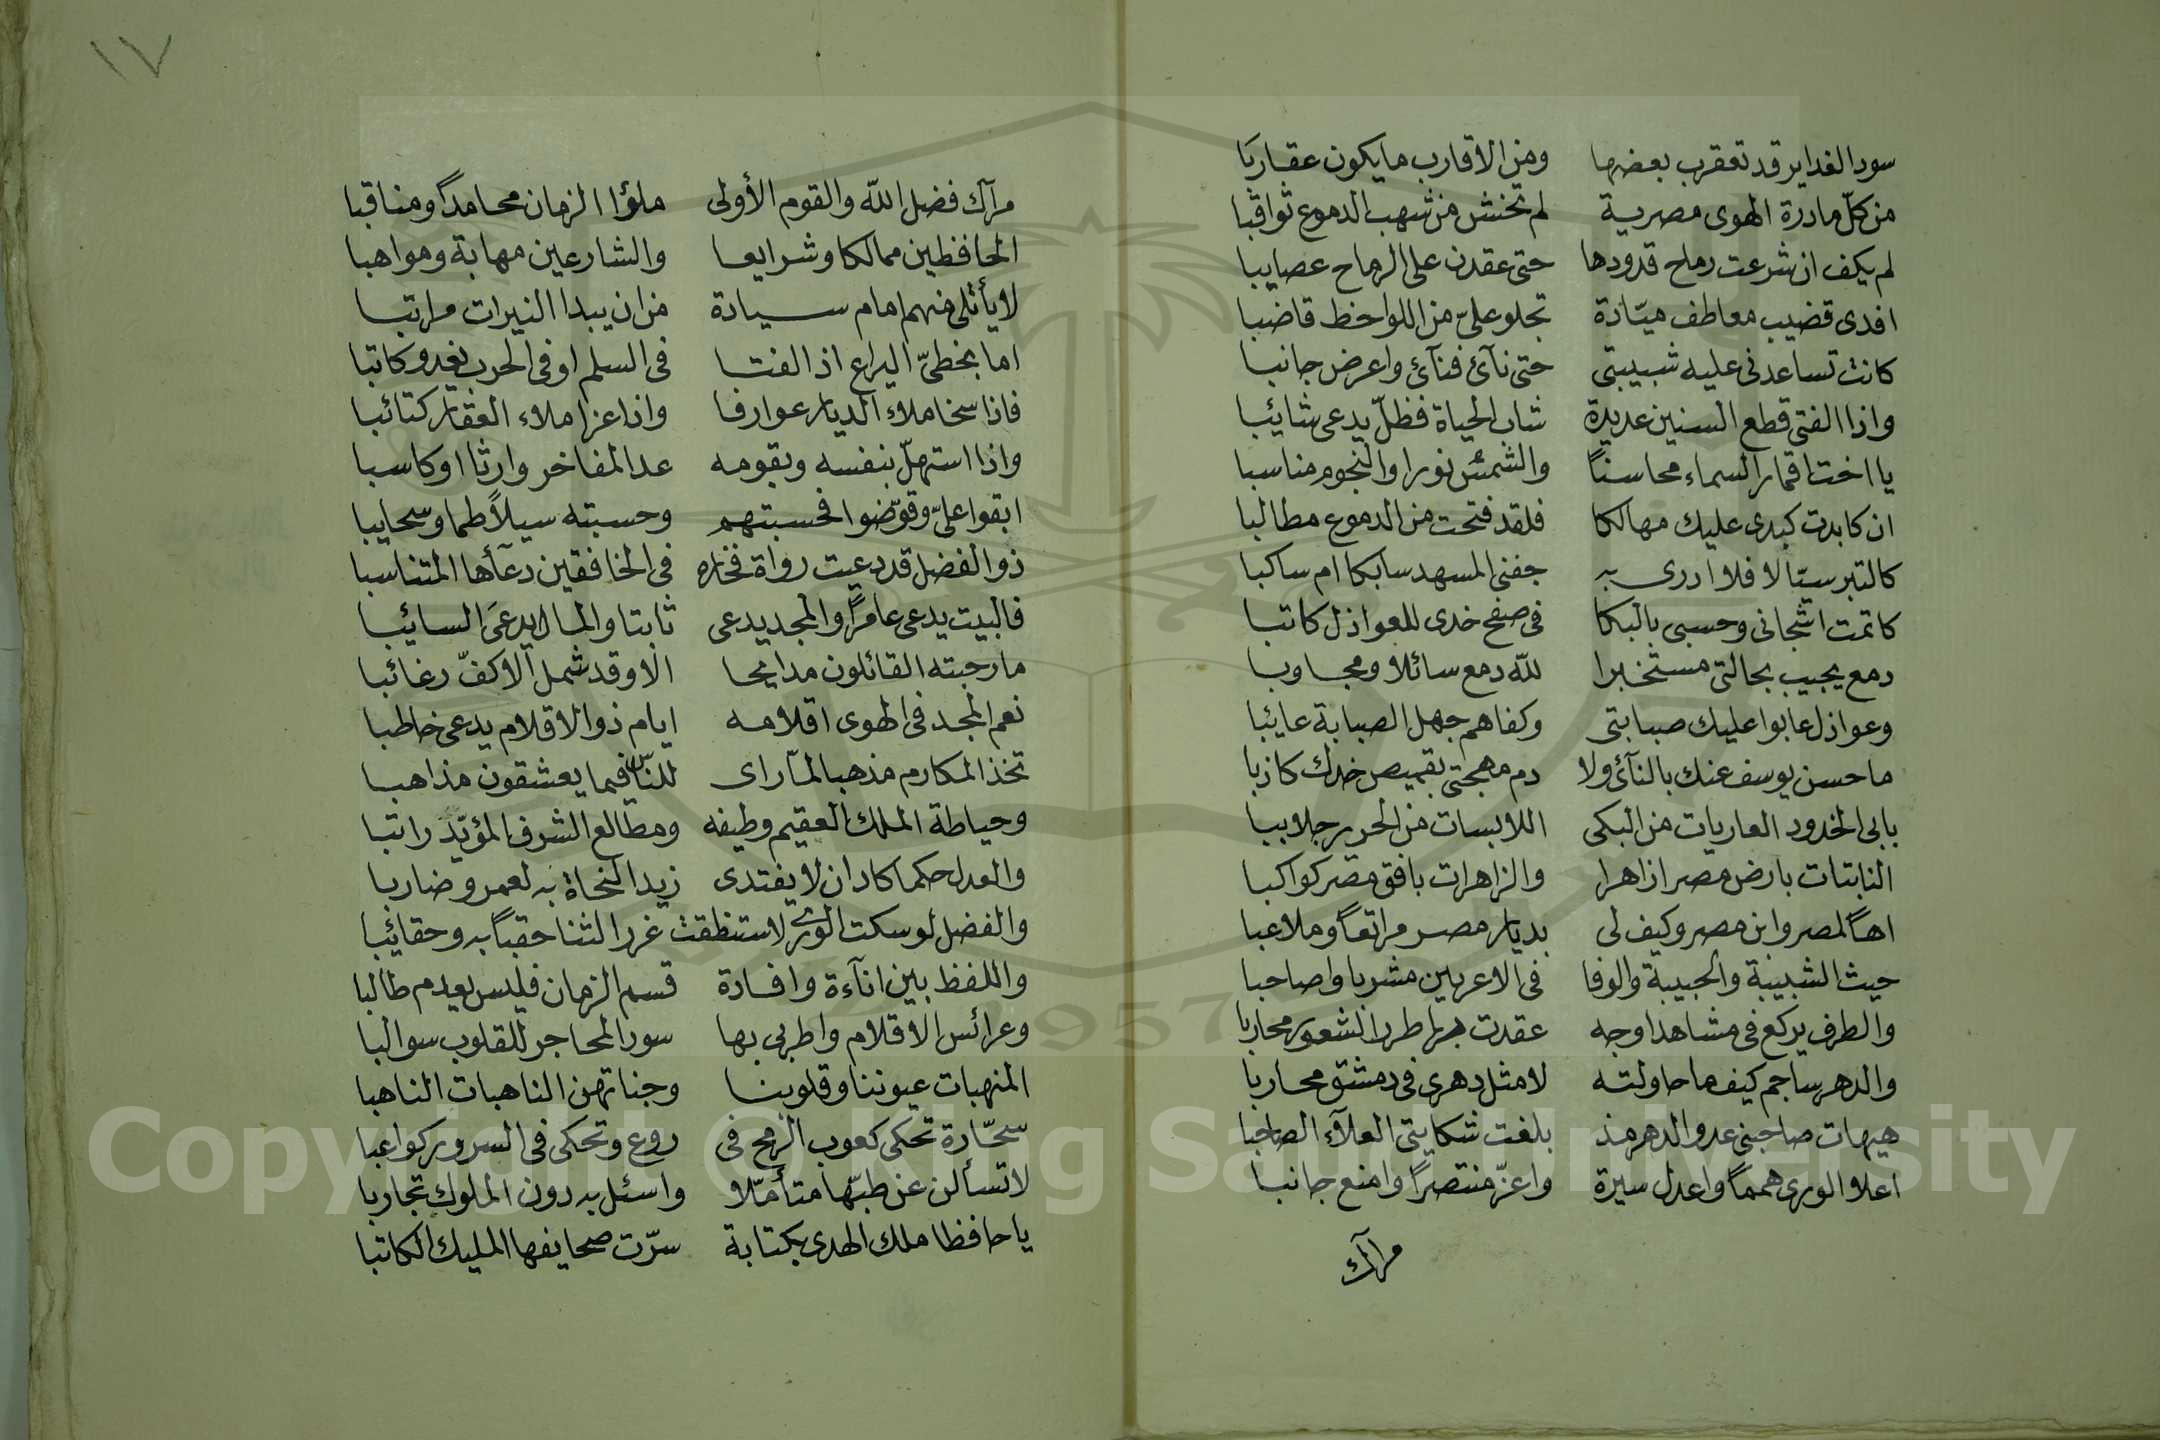 سود الغداير قد تعقرب بعضها ومن الاقارب ما يكون عقاربا
من كل مادرة الهوى مصرية لم تخش من شهب الدموع ثواقبا
لم يكف ان شرعت رماح قدودها حتى عقدن على الرماح عصايبا
افدى قضيب معاطف ميّادة تجلو علىّ من اللواحظ قاضبا
كانت تساعدنى عليه شبيبتى حتى نآئ فنآئ واعرض جانبا
واذا الفتى قطع السنين عديدة شاب الحياة فظلّ يدعى شائبا
يا اخت اقمار السماء محاسناً والشمس نورا والنجوم مناسبا
ان كابدت كبدى عليك مهالكا فلقد فتحت من الدموع مطالبا
كالتبر سيّالا فلا ادرى به جفنى المسهد سابكا ام ساكبا
كاتمت اشجانى وحسبى بالبكا فى صفح خدى للعواذل كاتبا
دمع يجيب بحالتى مستخبرا لله دمع سائلا ومجاوبا
وعواذل عابوا عليك صبابتى وكفاهم جهل الصبابة عايبا
ما حسن يوسف عنك بالنآئ ولا دم مهجتى بقميص خدك كاذبا
بابى الخدود العاريات من البكى اللابسات من الحرير جلاببا
النابتات بارض مصر ازاهرا والزاهرات بافق مصر كواكبا
اهاً لمصر واين مصر وكيف لى بديار مصر مراتعاً وملاعبا
حيث الشبيبة والحبيبة والوفا فى الاعربين مشربا واصاحبا
والطرف يركع فى مشاهد اوجه عقدت بها طرر الشعور محاربا
والدهر ساجم كيف ما حاولته لا مثل دهرى فى دمشق محاربا
هيهات صاحبنى عدو الدهر مذ بلغت شكايتى العلآء الصاحبا
اعلا الورى همماً واعدل سيرة واعزّ منتصراً وامنع جانبا
مرآك
١٧
مرآك فضل الله والقوم الأولى ملؤا الزمان محامداً ومناقبا
الحافظين ممالكا وشرايعا والشارعين مهابة ومواهبا
لا يأتلى منهم امام سيادة من ان يبدا النيرات مراتبا
اما بخطىّ اليراع اذ الفتا فى السلم او فى الحرب يغدو كاتبا
فاذا سخا ملاء الديار عوارفا واذا غزا ملاء القفار كتائبا
واذا استهلّ بنفسه وبقومه عد المفاخر وارثا او كاسبا
ابقوا علىّ وقوّضوا فحسبتهم وحسبته سيلاً طما وسحايبا
ذو الفضل قد دعيت رواة فخاره فى الخافقين دعآها المتناسبا
فالبيت يدعى عامراً والمجد يدعى ثابتا والمال يدعَى السايبا
ما رجبته القائلون مدايحا الا وقد شمل الاكفّ رغائبا
نعم المجد فى الهوى اقلامه ايام ذو الاقلام يدعى خاطبا
تخذ المكارم مذهبا لمآ راى للنّاس فيما يعشقون مذاهبا
وحياطة الملك العقيم وظيفه ومطالع الشرف المؤيّد راتبا
والعدل حكما كاد ان لا يفتدى زيد النحاة به لعمر وضاربا
والفضل لو سكت الورى لاستنطقت غرر الثنا حقباً به وحقائبا
واللفظ بين انآءة وافادة قسم الزمان فليس يعدم طالبا
وعرائس الاقلام واطربى بها سود المحاجر للقلوب سوالبا
المنهبات عيوننا وقلوبنا وجناتهن الناهبات الناهبا
سحّارة تحكى كعوب الرمح فى روع وتحكى فى السرور كواعبا
لا تسألن عن طبّها متأمّلا واسئل به دون الملوك تجاربا
يا حافظا ملك الهدى بكتابة سرّت صحايفها المليك الكاتبا
Copyright © King Saud University
1957